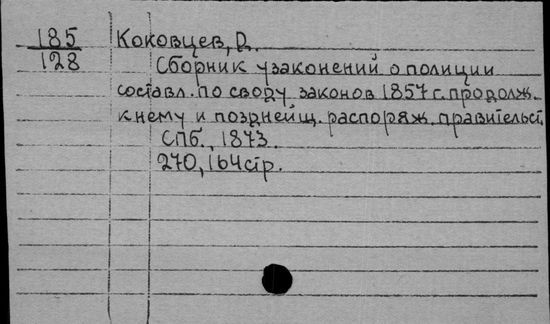 185
128
Коковцев, D.
Сборник узаконений о полиции
составл. по своду законов 1857 г. продолж.
к нему и позднейщ. распоряж. правительст.
СПб., 1873.
270, 164 стр.